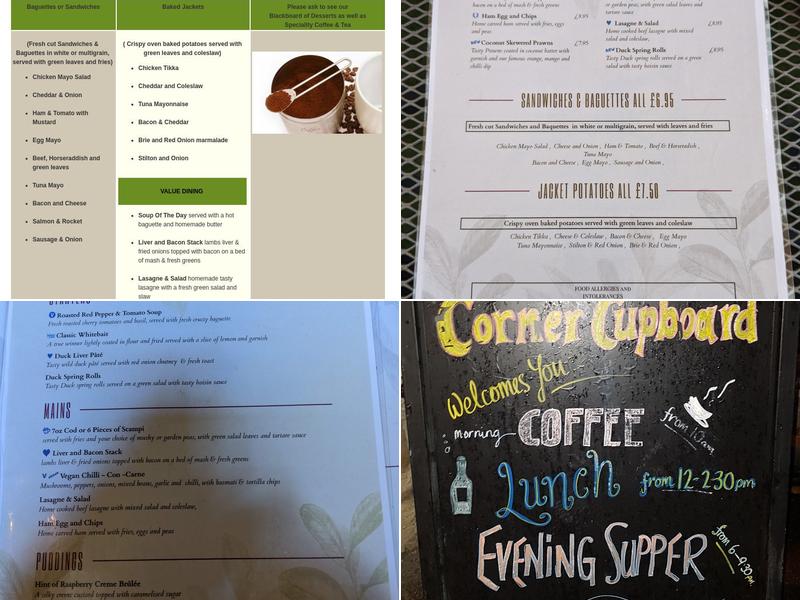 Baguettes or Sandwiches
Baked Jackets
Please ask to see our
Blackboard of Desserts as well as
Speciality Coffee & Tea
(Fresh cut Sandwiches &
Baguettes in white or multigrain,
served with green leaves and fries)
Chicken Mayo Salad
Cheddar & Onion
Ham & Tomato with
Mustard
Egg Mayo
Beef, Horseraddish and
green leaves
Tuna Mayo
Bacon and Cheese
Salmon & Rocket
Sausage & Onion
( Crispy oven baked potatoes served with
green leaves and coleslaw)
Chicken Tikka
Cheddar and Coleslaw
Tuna Mayonnaise
Bacon & Cheddar
Brie and Red Onion marmalade
Stilton and Onion
VALUE DINING
Soup Of The Day served with a hot
baguette and homemade butter
Liver and Bacon Stack lambs liver &
fried onions topped with bacon on a bed
of mash & fresh greens
Lasagne & Salad homemade tasty
lasagne with a fresh green salad and
slaw
bacon on a bed of mash & fresh greens
Ham Egg and Chips £8.95
Home carved ham served with fries, eggs
and peas
NEW Coconut Skewered Prawns £7.95
Tasty Prawns coated in coconut batter with
garnish and our famous orange, mango and
chilli dip
Lasagne & Salad £8.95
Home cooked beef lasagne with mixed
salad and coleslaw,
NEW Duck Spring Rolls £8.95
Tasty Duck spring rolls served on a green
salad with tasty hoisin sauce
SANDWICHES & BAGUETTES ALL £6.95
Fresh cut Sandwiches and Baquettes in white or multigrain, served with leaves and fries
Chicken Mayo Salad , Cheese and Onion , Ham & Tomato , Beef & Horseradish ,
Tuna Mayo
Bacon and Cheese , Egg Mayo , Sausage and Onion ,
JACKET POTATOES ALL £7.50
Crispy oven baked potatoes served with green leaves and coleslaw
Chicken Tikka , Cheese & Coleslaw , Bacon & Cheese , Egg Mayo
Tuna Mayonnaise , Stilton & Red Onion , Brie & Red Onion ,
FOOD ALLERGIES AND
INTOLERANCES
STARTERS
V Roasted Red Pepper & Tomato Soup
Fresh roasted cherry tomatoes and basil, served with fresh crusty baguette
Classic Whitebait
A true winner lightly coated in flour and fried served with a slice of lemon and garnish
Duck Liver Pâté
Tasty wild duck pâté served with red onion chutney & fresh toast
Duck Spring Rolls
Tasty Duck spring rolls served on a green salad with tasty hoisin sauce
MAINS
7oz Cod or 6 Pieces of Scampi
served with fries and your choice of mushy or garden peas, with green salad leaves and tartare sauce
Liver and Bacon Stack
lambs liver & fried onions topped with bacon on a bed of mash & fresh greens
V NEW Vegan Chilli - Con -Carne
Mushrooms, peppers, onions, mixed beans, garlic and chilli, with basmati & tortilla chips
Lasagne & Salad
Home cooked beef lasagne with mixed salad and coleslaw,
Ham Egg and Chips
Home carved ham served with fries, eggs and peas
PUDDINGS
Hint of Raspberry Creme Brûlée
A silky creme custard topped with caramelised sugar
Corner Cupboard
Welcomes You
morning COFFEE from 10am
Lunch from 12-2·30pm
EVENING SUPPER from 6-9.30pm